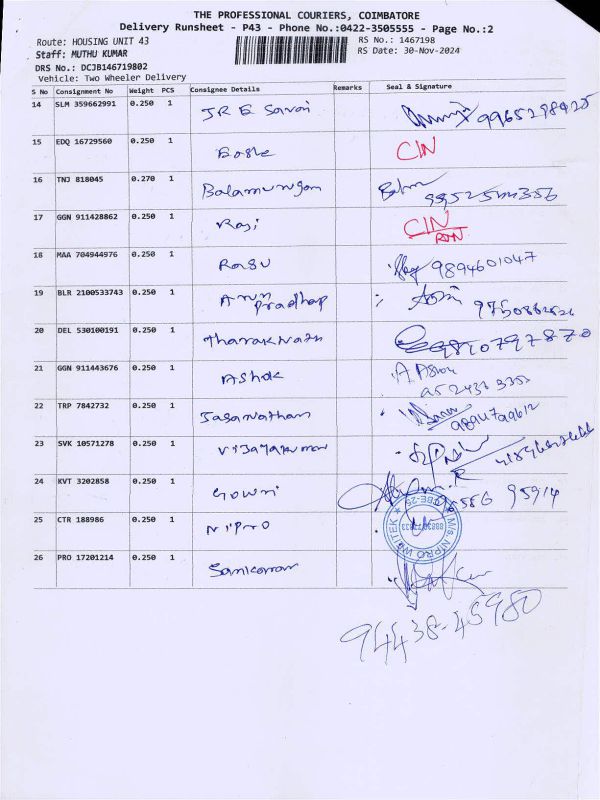 THE PROFESSIONAL COURIERS, COIMBATORE
Delivery Runsheet - P43 - Phone No.:0422-3505555 - Page No.:2
Route: HOUSING UNIT 43 RS No.: 1467198
Staff: MUTHU KUMAR RS Date: 30-Nov-2024
DRS No.: DCJB146719802
Vehicle: Two Wheeler Delivery
S No Consignment No Weight PCS Consignee Details Remarks Seal & Signature
14 SLM 359662991 0.250 1 JR E
15 EDQ 16729560 0.250 1 CIN
16 TNJ 818045 0.270 1 Balamurugan
17 GGN 911428862 0.250 1 Raji CIN
18 MAA 704944976 0.250 1 Rasu 9894601047
19 BLR 2100533743 0.250 1 Arun
Pradhap
20 DEL 530100191 0.250 1 Tharaknath 9810797870
21 GGN 911443676 0.250 1 Ashok
22 TRP 7842732 0.250 1
23 SVK 10571278 0.250 1 Vijayakumar
24 KVT 3202858 0.250 1 Gowri
25 CTR 188986 0.250 1 Nipro
26 PRO 17201214 0.250 1
94438-45980